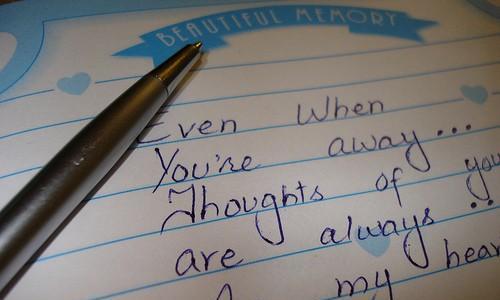 BEAUTIFUL MEMORY
Even When
You're away...
Thoughts of you
are always ..
my hear